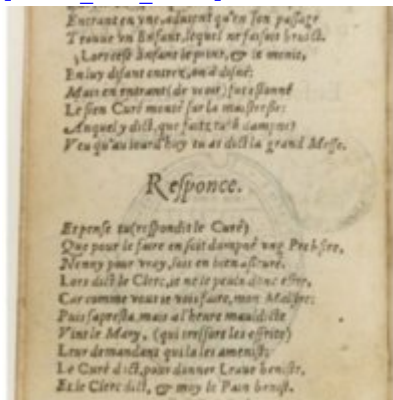 Entrant en vne, aduient qu'en son passage
Trouue vn Enfant, lequel ne faisoit bruict.
Lors cest Enfant le print, & le mene,
En luy disant entrez, on a disné:
Mais en entrant (de veoir) fut estonné
Le sien Curé monté sur la maistresse:
Auquel y dict, que faitz tu? dampné?
Veu qu'au iourd'huy tu as dict la grand Messe.
Responce.
Et pense tu (respondit le Curé)
Que pour le faire en soit dampné vng Prebstre,
Nenny pour vray, sois en bien asseuré.
Lors dict le Clerc, ie ne le peulx donc estre,
Car comme vous ie vois faire, mon Maistre:
Puis s'apresta, mais a l'heure mauldicte
Vint le Mary, (qui
Leur demandant qui la les
Le Curé dict, pour donner L'eaue beniste,
Et le Clerc dict, & moy le Pain benist.